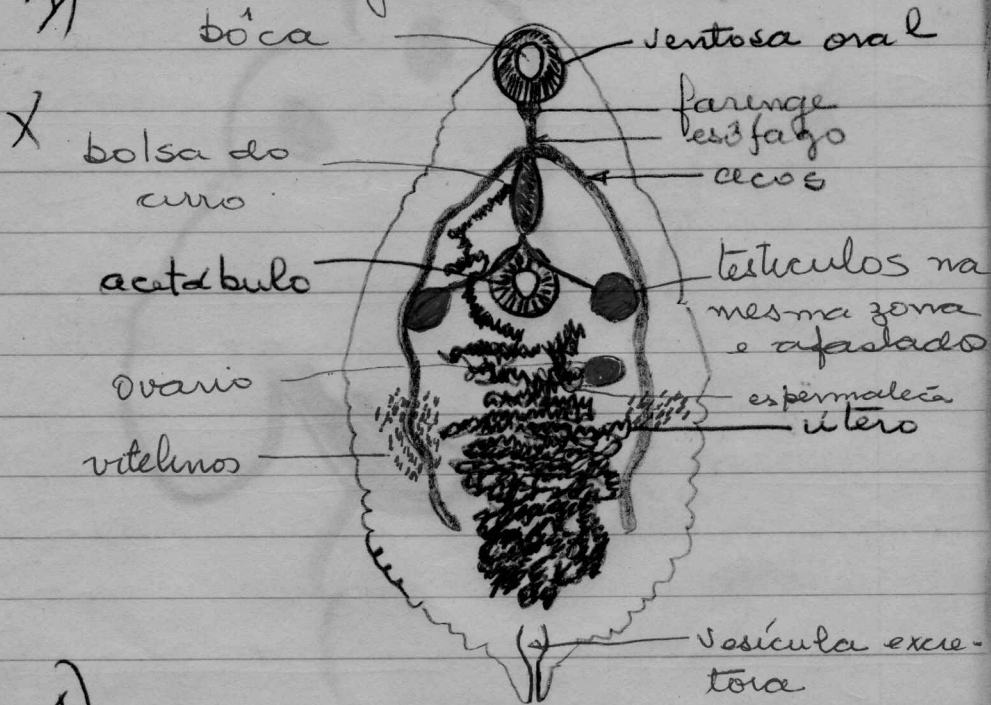 bôca
ventosa oral
X
faringe
esôfago
bolsa do
cirro
cecos
acetábulo
testiculos na
mesma zona
e afastado
ovario
espermateca
útero
vitelinos
vesícula excre-
tora